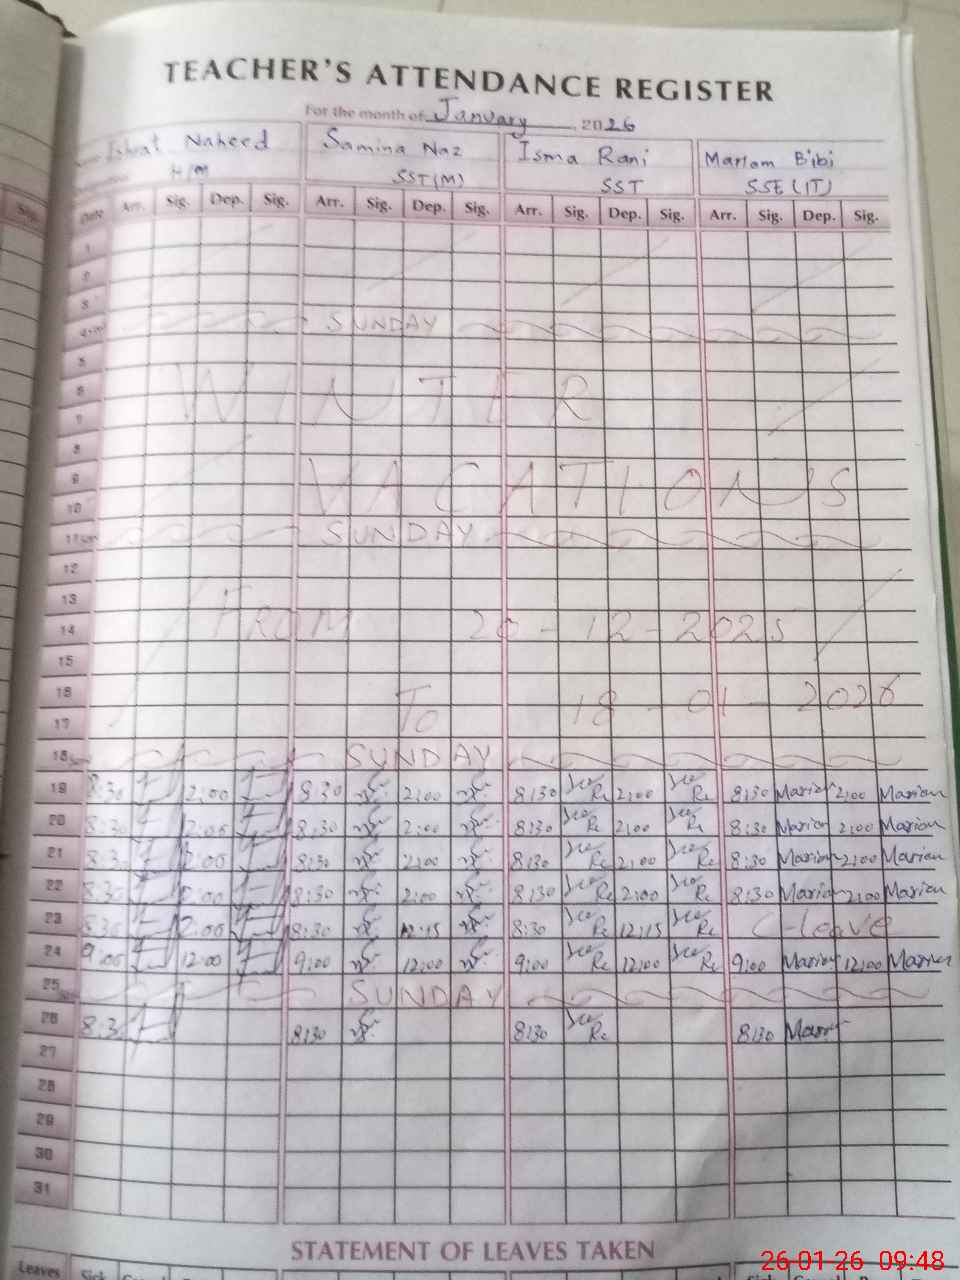 TEACHER'S ATTENDANCE REGISTER
For the month of January, 2026
Ishrat Naheed Samina Naz Isma Rani Mariam Bibi
H/M SST(M) SST SSE (IT)
Date Arr. Sig. Dep. Sig. Arr. Sig. Dep. Sig. Arr. Sig. Dep. Sig. Arr. Sig. Dep. Sig.
1
2
3
4 SUNDAY
5
6 WINTER
7
8
9 VACATIONS
10
11 SUNDAY
12
13
14 FROM 20-12-2025
15
16 To 18-01-2026
17
18 SUNDAY
19 8:30 2:00 8:30 2:00 8:30 2:00 8:30 Mariam 2:00 Mariam
20 8:30 2:00 8:30 2:00 8:30 2:00 8:30 Mariam 2:00 Mariam
21 8:3 2:00 8:30 2:00 8:30 2:00 8:30 Mariam 2:00 Mariam
22 8:30 2:00 8:30 2:00 8:30 2:00 8:30 Mariam 2:00 Mariam
23 8:30 2:00 8:30 12:15 8:30 12:15 C-leave
24 9:00 12:00 9:00 12:00 9:00 12:00 9:00 Mariam 12:00 Mariam
25 SUNDAY
26 8:3 8:30 8:30 8:30 Mariam
27
28
29
30
31
STATEMENT OF LEAVES TAKEN
Leaves Sick
26-01-26 09:48